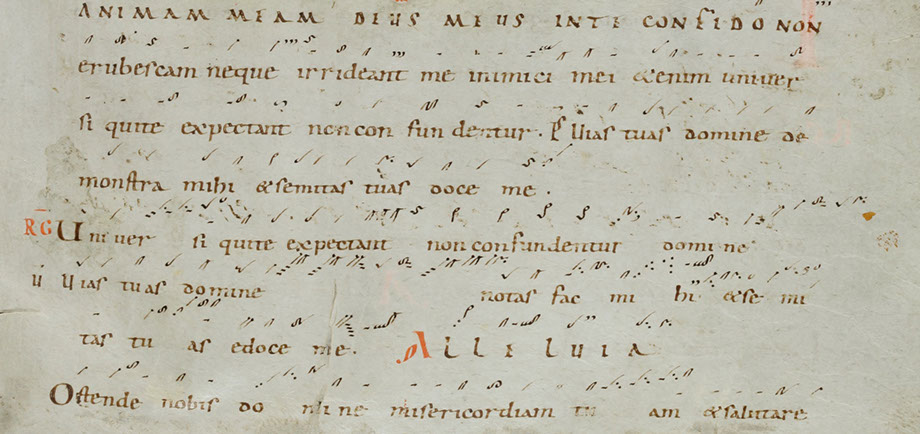 ANIMAM MEAM DEUS MEUS INTE CONFIDO NON
erubescam neque irrideant me inimici mei &enim univer
si quite expectant noncon fundentur. Vias tuas domine de
monstra mihi &semitas tuas doce me.
RG Univer si quite expectant non confundentur domine
V Vias tuas domine notas fac mi hi &se mi
tas tu as edoce me. ALLELUIA
Ostende nobis do mine misericordiam tu am &salutare